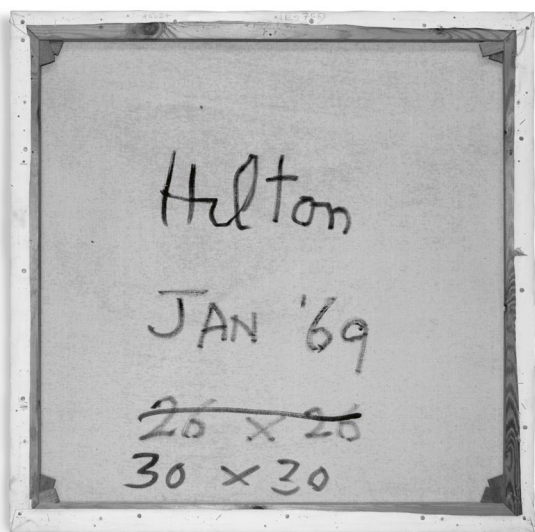 Hilton
JAN '69
26 x 26
30 x 30